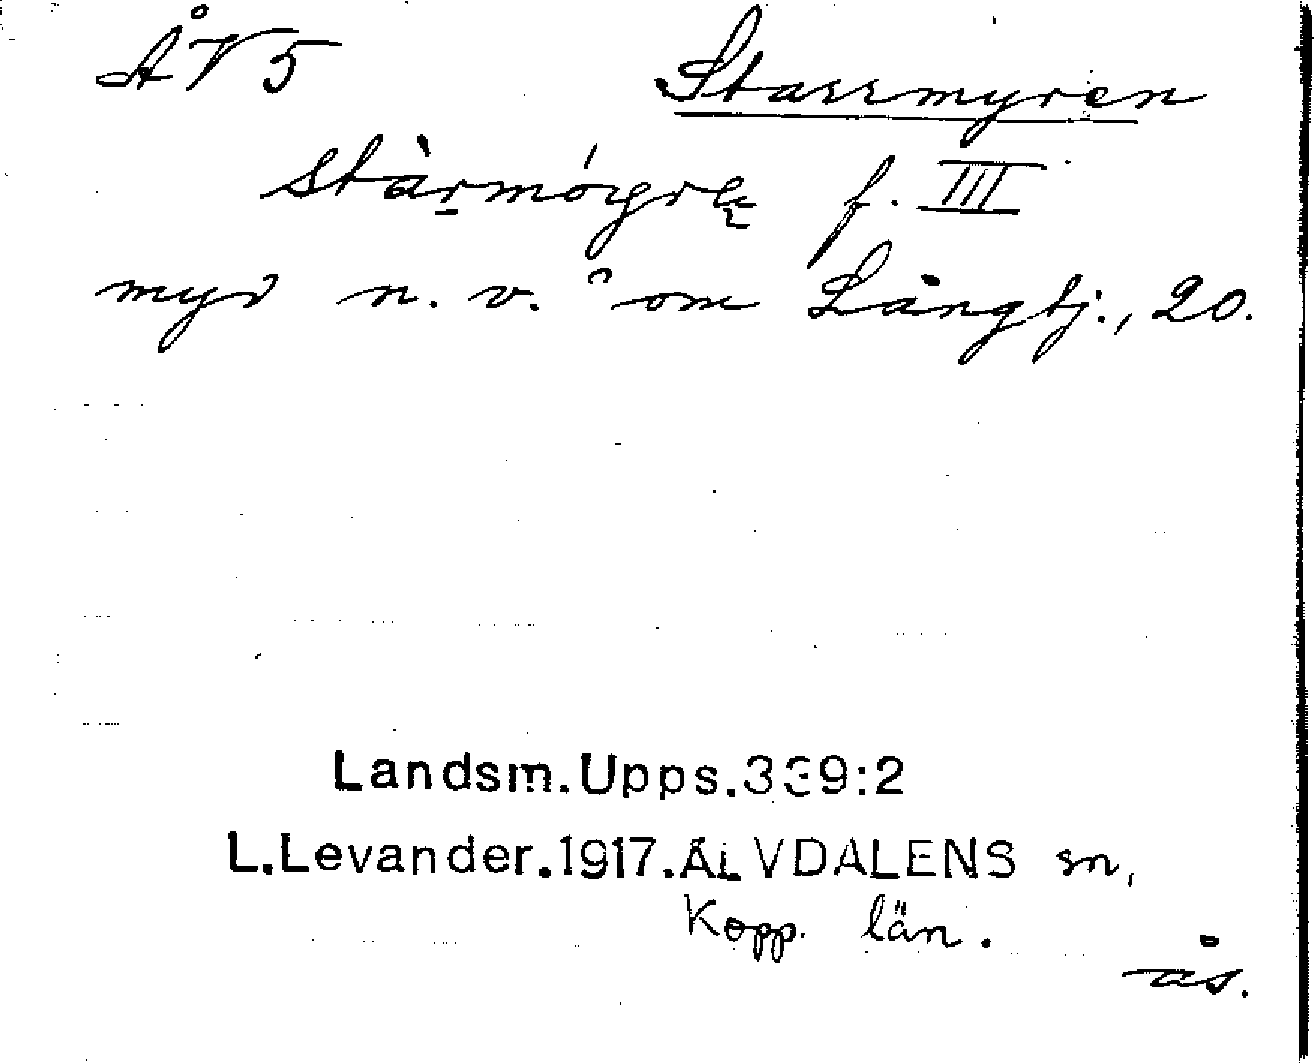 ÅV5 Starrmyren
f. III
myr n. v. om Långtj., 20.
Landsm.Upps.339:2
L.Levander.1917.ÄLVDALENS sn,
Kopp. län.
ås.